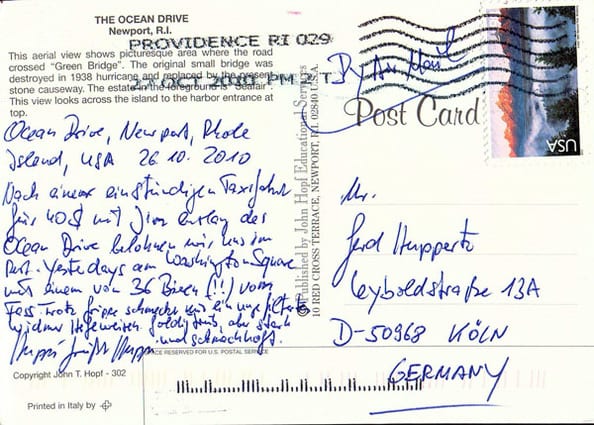 THE OCEAN DRIVE
Newport, R.I.
This aerial view shows picturesque area where the road
crossed "Green Bridge". The original small bridge was
destroyed in 1938 hurricane and replaced by the present
stone causeway. The estate in the foreground is "Seafair".
This view looks across the island to the harbor entrance at
top.
PROVIDENCE RI 029
OCT 2010 PM 2 T
By Air Mail
Post Card
USA
Ocean Drive, Newport, Rhode
Island, USA 26.10.2010
Nach einer einstündigen Taxifahrt
für 40$ mit Jim entlang des
Ocean Drive belohnen wir uns im
Pub Yesterdays am Washington Square
mit einem von 36 Bieren (!!) vom
Fass. Trotz Grippe schmeckt mir ein
Widmer Hefeweizen goldig, aber stark
und schmackhaft.
© Published by John Hopf Educational Services
10 RED CROSS TERRACE, NEWPORT, R.I. 02840 U.S.A.
Mr.
Gerd Huppertz
Leyboldstraße 13A
D-50968 KÖLN
GERMANY
SPACE RESERVED FOR U.S. POSTAL SERVICE
Copyright John T. Hopf - 302
Printed in Italy by